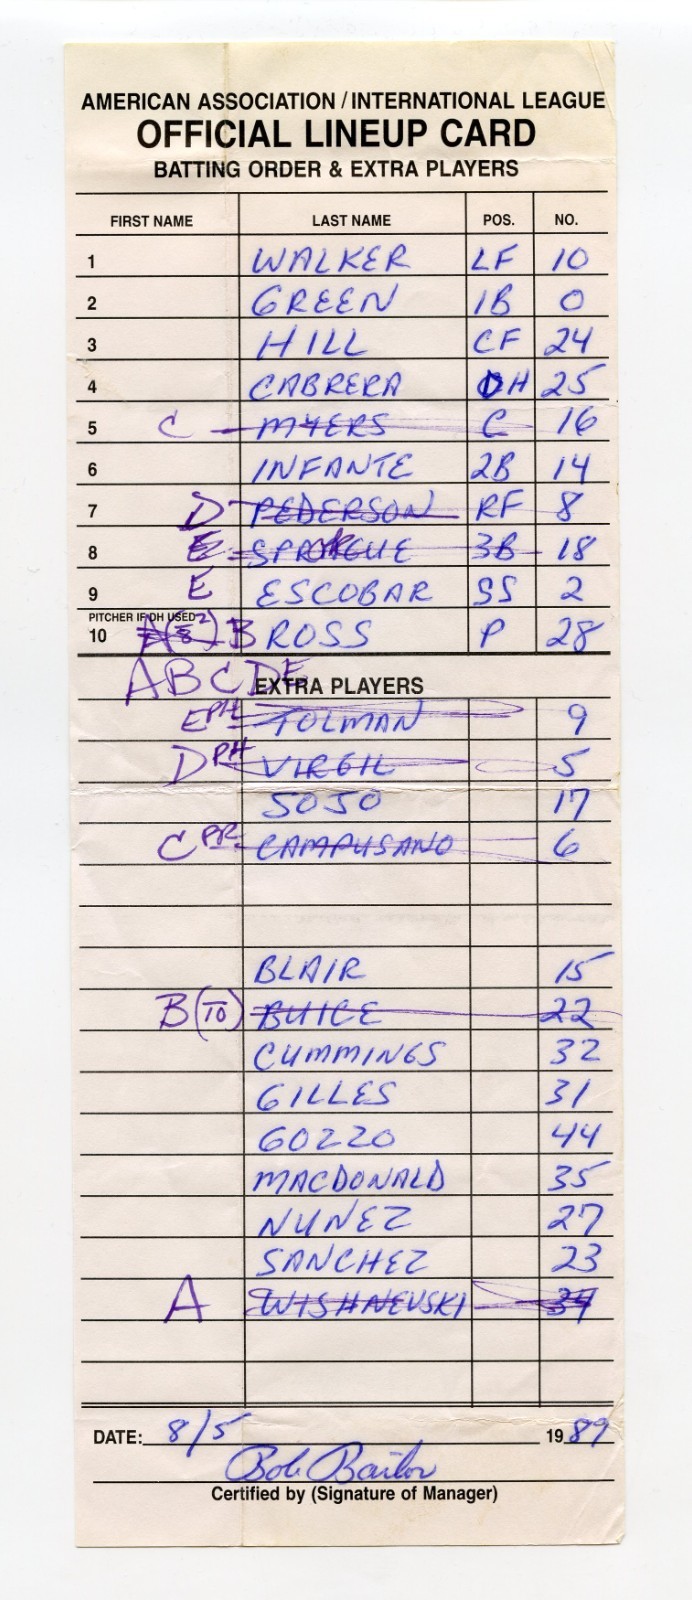 AMERICAN ASSOCIATION / INTERNATIONAL LEAGUE
OFFICIAL LINEUP CARD
BATTING ORDER & EXTRA PLAYERS
FIRST NAME LAST NAME POS. NO.
1 WALKER LF 10
2 GREEN 1B 0
3 HILL CF 24
4 CABRERA DH 25
5 C MYERS C 16
6 INFANTE 2B 14
7 D PEDERSON RF 8
8 E SPRAGUE 3B 18
9 E ESCOBAR SS 2
PITCHER IF DH USED
10 B ROSS P 28
A B C D E
EXTRA PLAYERS
E PH TOLMAN 9
D PH VIRGIL 5
SOJO 17
C PR CAMPUSANO 6
BLAIR 15
B (10) BUICE 22
CUMMINGS 32
GILLES 31
GOZZO 44
MACDONALD 35
NUNEZ 27
SANCHEZ 23
A WISHNEVSKI 34
DATE: 8/5 1989
Bob Bailor
Certified by (Signature of Manager)